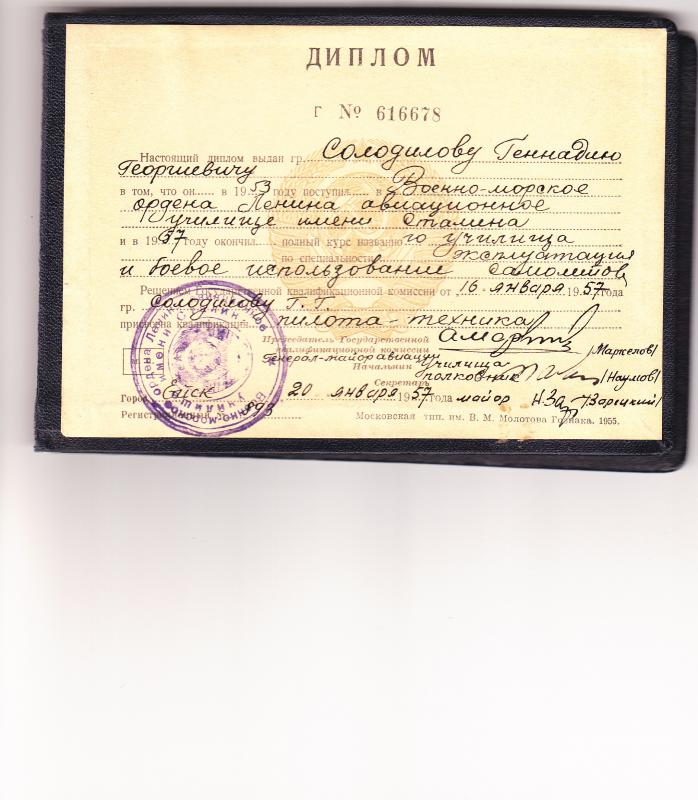 ДИПЛОМ
Г № 616678
Настоящий диплом выдан гр. Солодилову Геннадию
Георгиевичу
в том, что он в 1953 году поступил в Военно-морское
ордена Ленина авиационное
училище имени Сталина
и в 1957 году окончил полный курс названного училища
по специальности эксплуатация
и боевое использование самолетов
Решением Государственной квалификационной комиссии от 16 января 1957 года
гр. Солодилову Г. Г.
присвоена квалификация пилота-техника
Председатель Государственной
квалификационной комиссии
Генерал-майор авиации /Маркелов/
Начальник училища
полковник /Наумов/
Секретарь
Город Ейск 20 января 1957 года майор
Регистрационный №
Московская тип. им. В. М. Молотова Гознака. 1955.